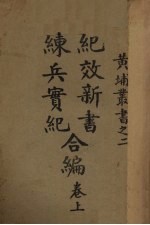 黃埔叢書之二
紀效新書
練兵實紀
合編
卷上